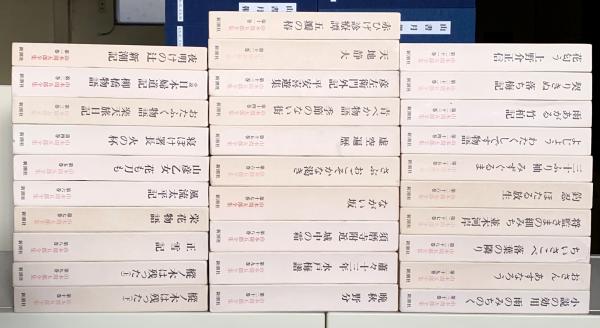 夜明けの辻 新潮記
新潮社
小説 日本婦道記 柳橋物語
新潮社
おたふく物語 楽天旅日記
新潮社
寝ぼけ署長 火の杯
新潮社
山彦乙女 花も刀も
新潮社
風流太平記
新潮社
栄花物語
新潮社
正雪記
新潮社
樅ノ木は残った(上)
新潮社
樅ノ木は残った(下)
新潮社
赤ひげ診療譚 五瓣の椿
新潮社
天地静大
新潮社
彦左衛門外記 平安喜遊集
新潮社
青べか物語 季節のない街
新潮社
虚空遍歴
新潮社
さぶ おごそかな渇き
新潮社
ながい坂
新潮社
須磨寺附近 城中の霜
新潮社
蕭々十三年 水戸梅譜
新潮社
晩秋 野分
新潮社
花匂う 上野介正信
新潮社
契りきぬ 落ち梅記
新潮社
雨あがる 竹柏記
新潮社
よじょう わたくしです物語
新潮社
三十ふり袖 みずぐるま
新潮社
釣忍 ほたる放生
新潮社
将監さまの細みち 並木河岸
新潮社
ちいさこべ 落葉の隣り
新潮社
おさん あすなろう
新潮社
小説の効用 雨のみちのく
新潮社